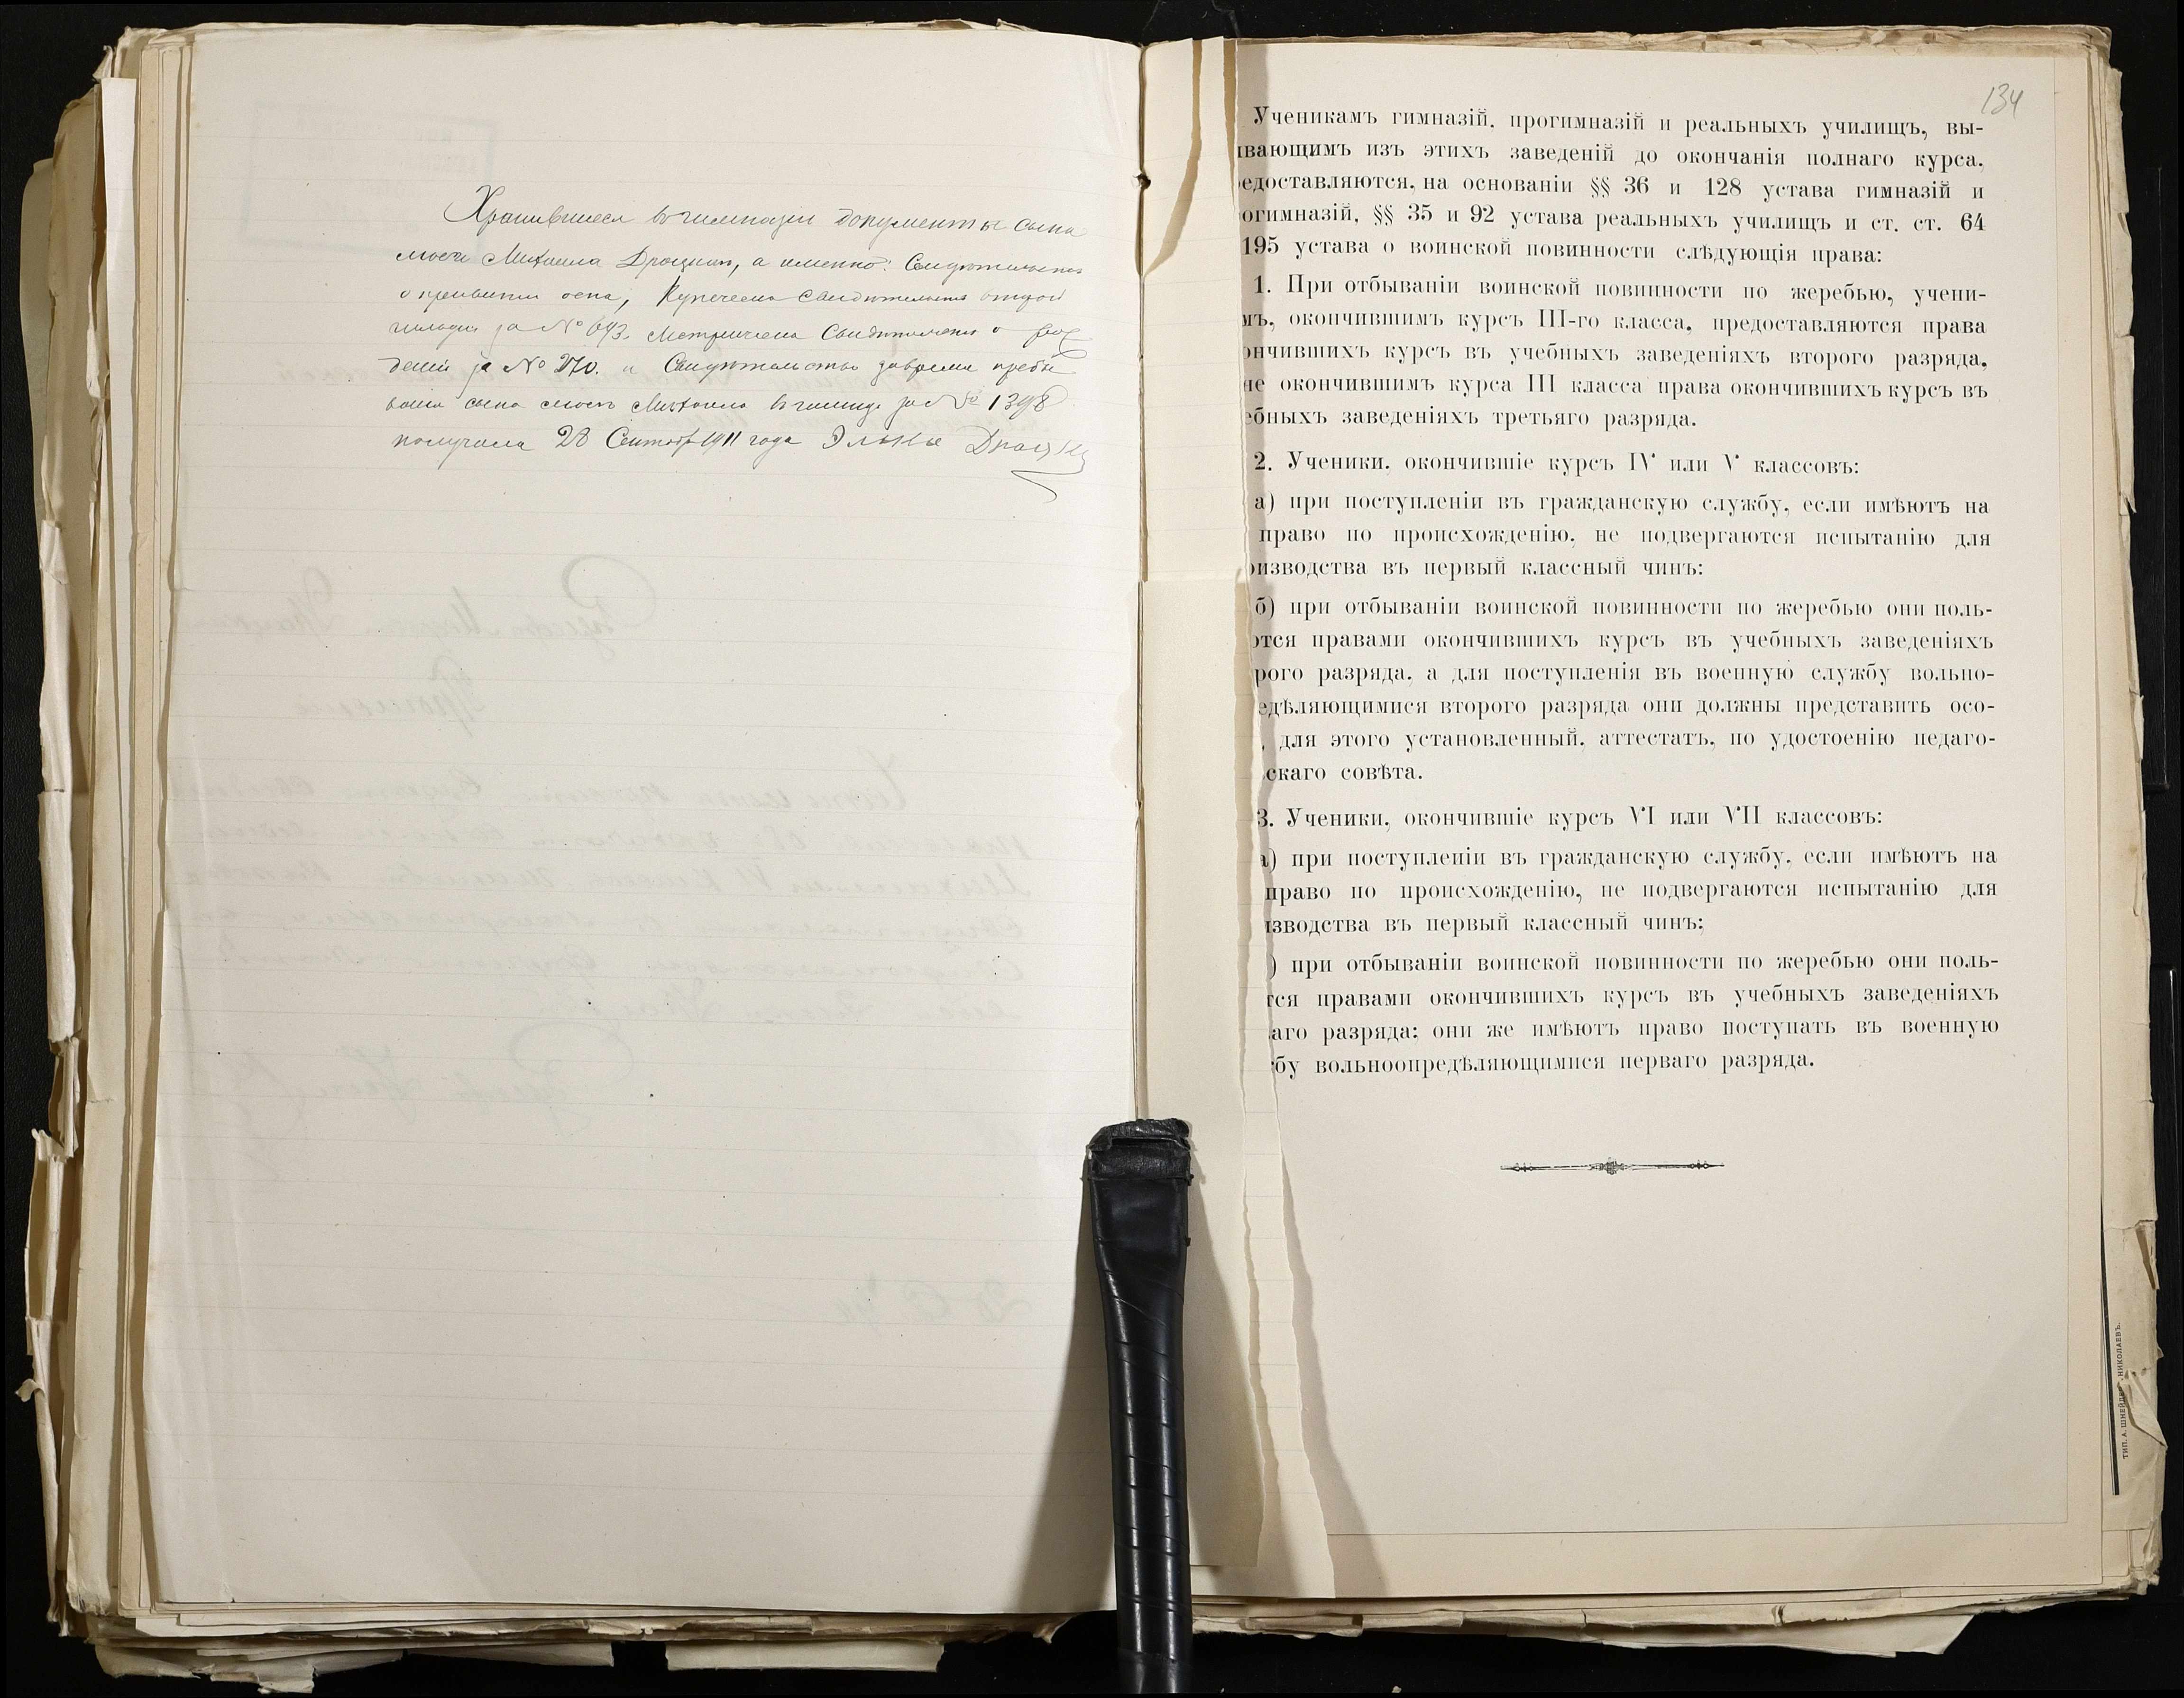 Хранившиеся въ гимназіи документы сына
моего Михаила, а именно: Свидѣтельство
о оспы, Купеческое Свидѣтельство второй
гильдіи за № 643. Метрическое Свидѣтельство о рож
деніи за № 270. и Свидѣтельство за время пребы
ванія сына моего Михаила въ за № 1398
получила 28 Сентября 1911 года
134
Ученикамъ гимназій, прогимназій и реальныхъ училищъ, вы-
ивающимъ изъ этихъ заведеній до окончанія полнаго курса,
едоставляются, на основаніи §§ 36 и 128 устава гимназій и
огимназій, §§ 35 и 92 устава реальныхъ училищъ и ст. ст. 64
195 устава о воинской повинности слѣдующія права:
1. При отбываніи воинской повинности по жеребью, учени-
мъ, окончившимъ курсъ III-го класса, предоставляются права
ончившихъ курсъ въ учебныхъ заведеніяхъ второго разряда,
не окончившимъ курса III класса права окончившихъ курсъ въ
ебныхъ заведеніяхъ третьяго разряда.
2. Ученики, окончившіе курсъ IV или V классовъ:
а) при поступленіи въ гражданскую службу, если имѣютъ на
право по происхожденію, не подвергаются испытанію для
оизводства въ первый классный чинъ:
б) при отбываніи воинской повинности по жеребью они поль-
отся правами окончившихъ курсъ въ учебныхъ заведеніяхъ
рого разряда, а для поступленія въ военную службу вольно-
едѣляющимися второго разряда они должны представить осо-
, для этого установленный, аттестатъ, по удостоенію педаго-
скаго совѣта.
3. Ученики, окончившіе курсъ VI или VII классовъ:
а) при поступленіи въ гражданскую службу, если имѣютъ на
право по происхожденію, не подвергаются испытанію для
изводства въ первый классный чинъ;
) при отбываніи воинской повинности по жеребью они поль-
тся правами окончившихъ курсъ въ учебныхъ заведеніяхъ
аго разряда; они же имѣютъ право поступать въ военную
бу вольноопредѣляющимися перваго разряда.
НИКОЛАЕВЪ.